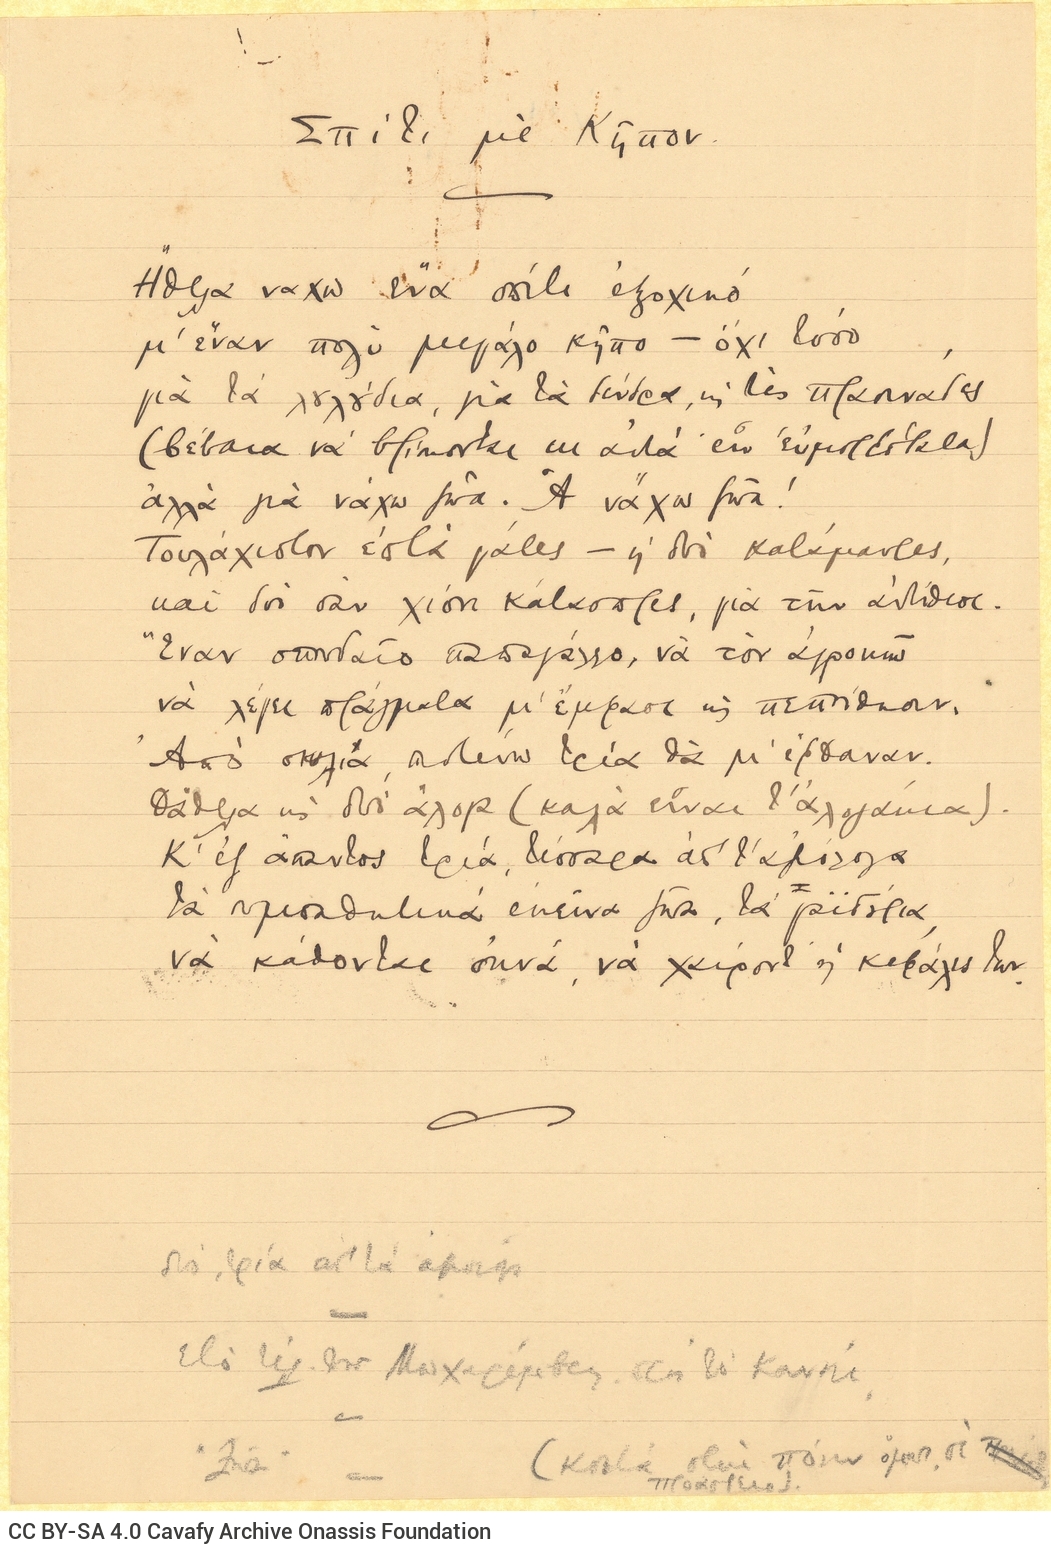 Σπίτι μὲ Κῆπον.
Ἤθελα νάχω ἕνα σπίτι ἐξοχικό
μ' ἕναν πολὺ μεγάλο κῆπο — ὄχι τόσο
γιὰ τὰ λουλούδια, γιὰ τὰ δένδρα, κὴ τὲς πρασινάδες
(βέβαια νὰ βρίσκονται κι αὐτά· εἶν' εὐμορφότατα)
ἀλλὰ γιὰ νάχω ζῶα. Ἄ νἄχω ζῶα!
Τουλάχιστον ἑφτὰ γάτες — ἡ δυὸ κατάμαυρες,
καὶ δυὸ σὰν χιόνι κάτασπρες, γιὰ τὴν ἀντίθεσι.
Ἕναν σπουδαῖο παπαγάλλο, νὰ τὸν ἀγροικῶ
νὰ λέγει πράγματα μ' ἔμφασι κὴ πεποίθησιν.
Ἀπὸ σκυλιά, πιστεύω τρία θὰ μ' ἔφθαναν.
Θἄθελα κὴ δυὸ ἄλογα (καλὰ εἶναι τ' ἀλογάκια).
Κ' ἐξ ἅπαντος τρία, τέσσαρα ἀπ' τ' ἀξιόλογα
τὰ συμπαθητικὰ ἐκεῖνα ζῶα, τὰ γαϊδούρια,
νὰ κάθονται ὀκνά, νὰ χαίροντ' ἡ κεφάλες των.
δυό, τρία ἀπ' τὰ
ἀπὸ τὸ
"Ζῶα" (κοντὰ στὴν πόλιν ὅμως, σὲ
προάστειο).